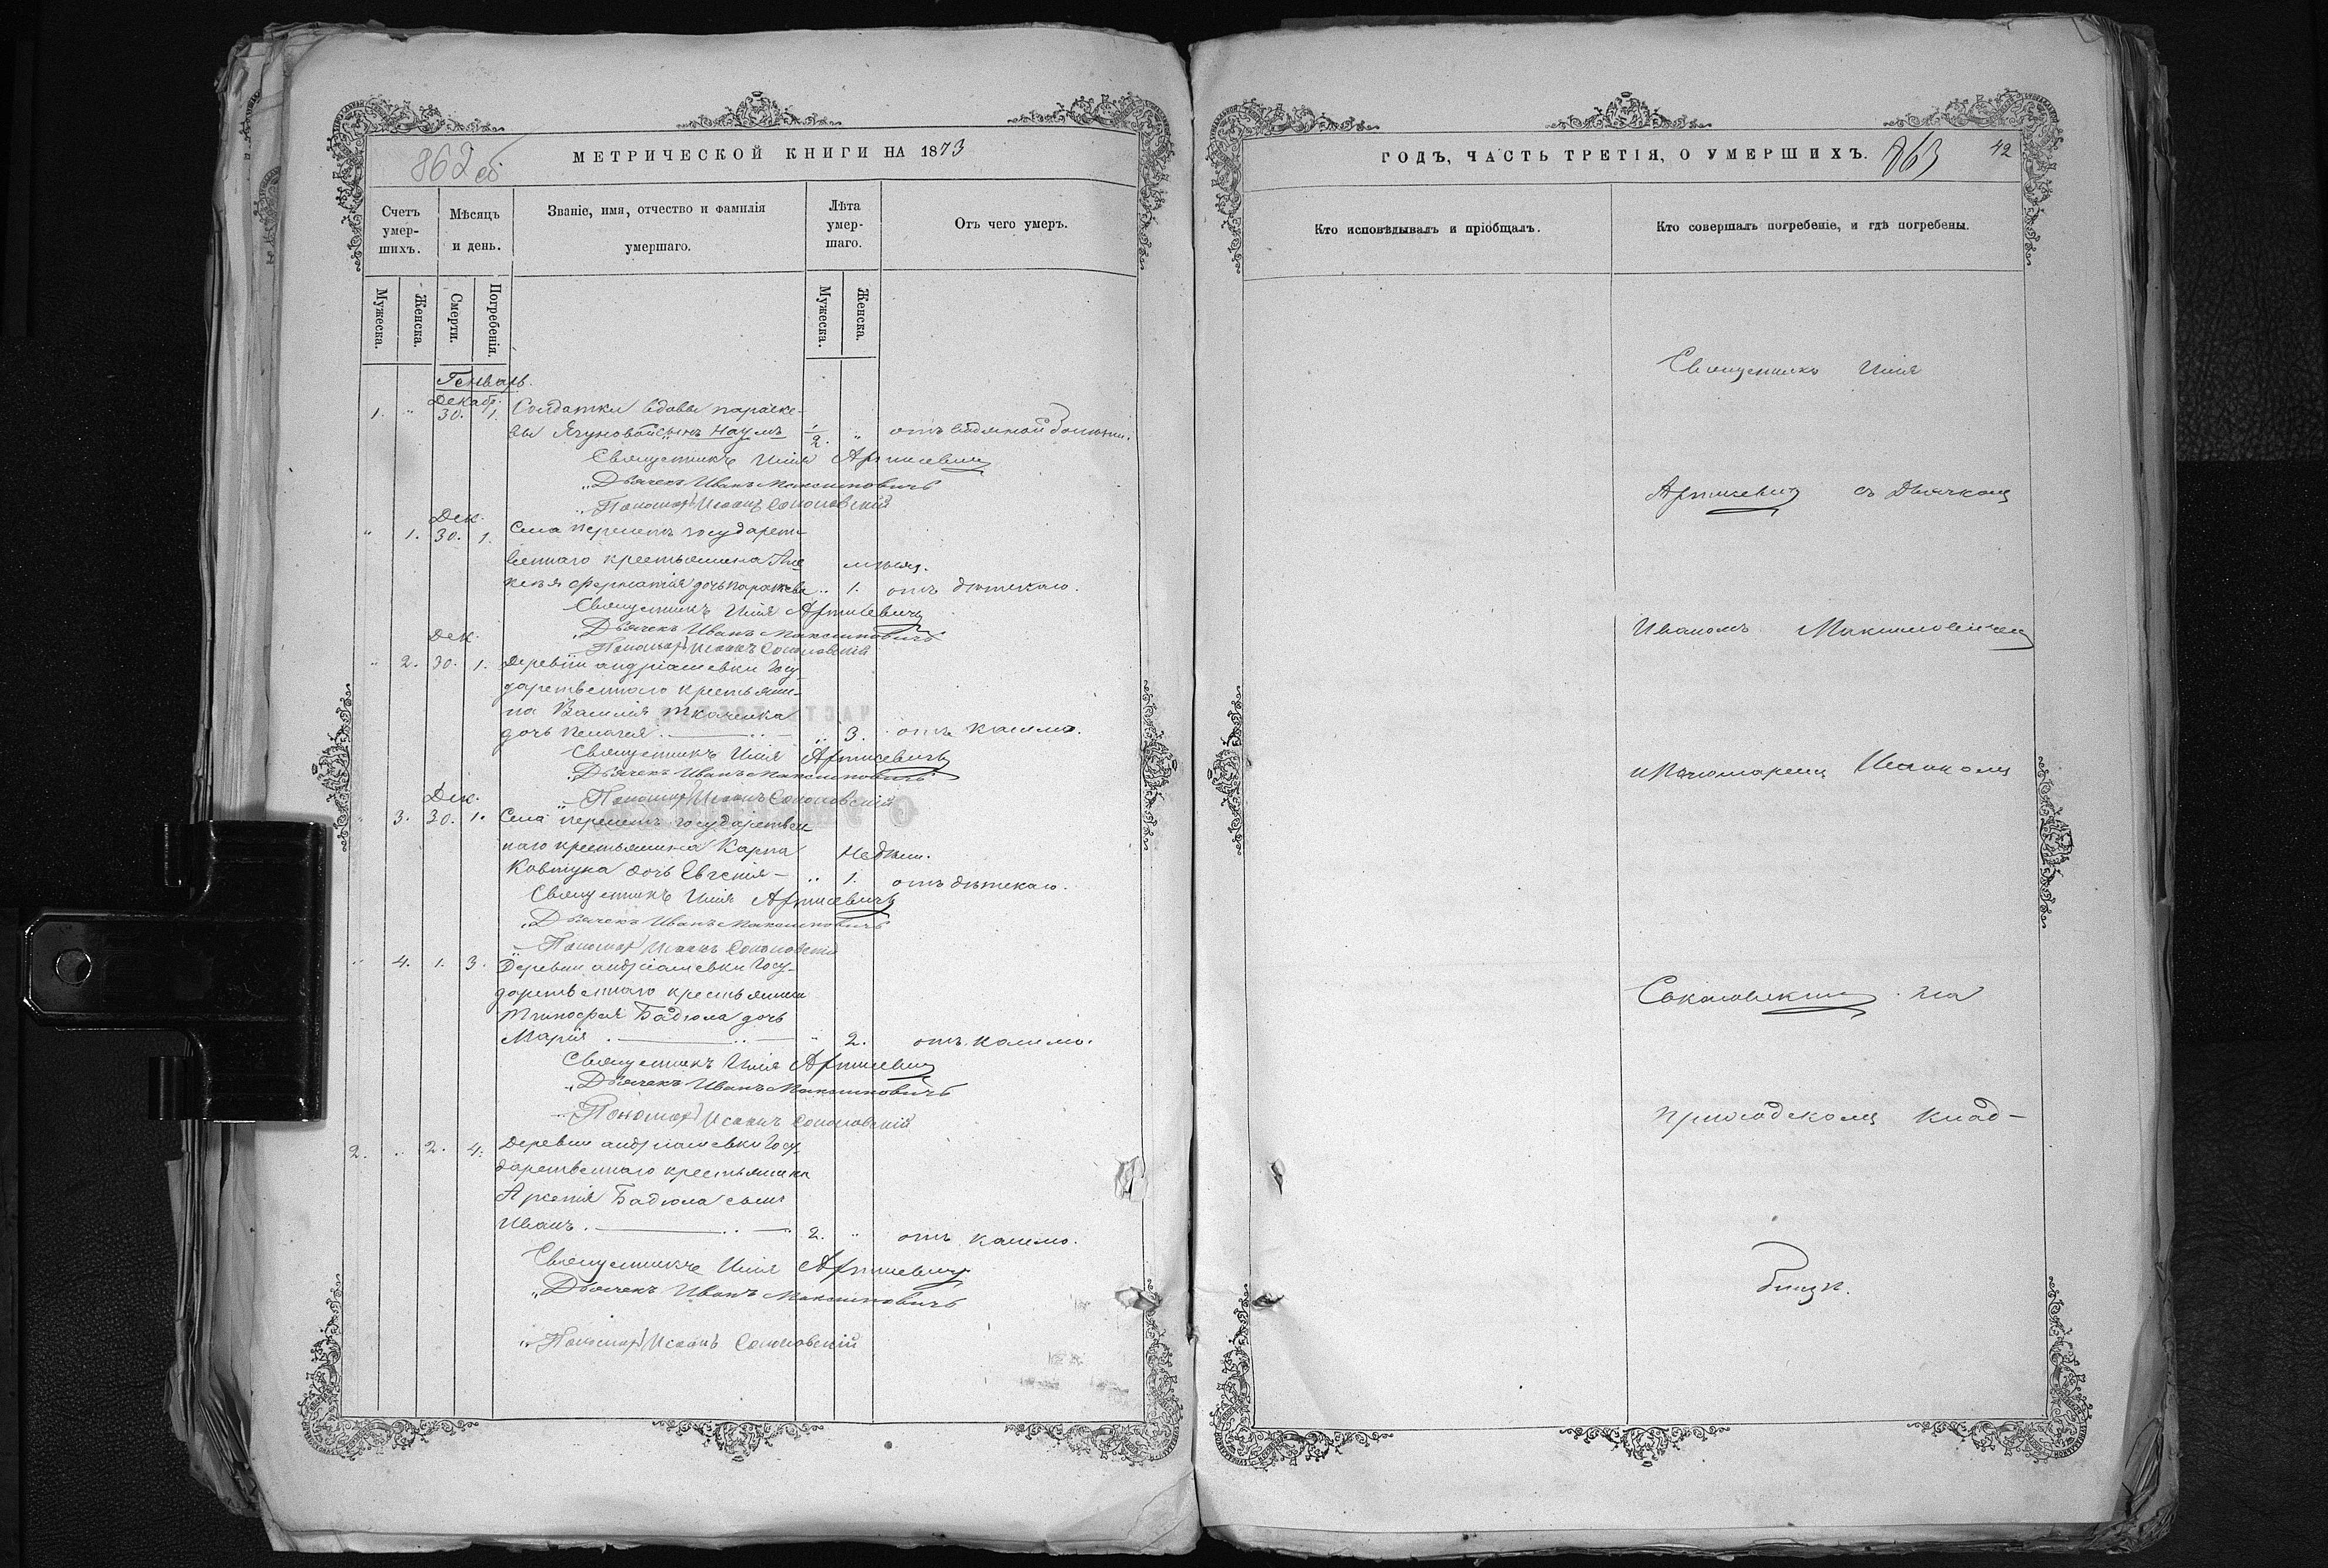 862 об
МЕТРИЧЕСКОЙ КНИГИ НА 1873
Счетъ умер-шихъ.
Мѣсяцъ и день.
Званіе, имя, отчество и фамилія умершаго.
Лѣта умер-шаго.
Отъ чего умеръ.
Мужеска.
Женска.
Смерти.
Погребенія.
Мужеска.
Женска.
Генварь.
Декабр.
1. " 30. 1. Солдатки вдовы параске-
вы Ягуновой сынъ Наумъ 1/2. " отъ
Священникъ Илія Артисевич
Дьячекъ Иванъ Максимовичъ
Пономар Исаакъ Соколовскій
Дек.
" 1. 30. 1. Села перешепъ государст-
веннаго крестьянина
дочь параскева " 1. отъ дѣтскаго.
Священникъ Илія Артисевичъ
Дьячекъ Иванъ Максимовичъ
Пономар Исаакъ Соколовскій
Дек.
" 2. 30. 1. Деревни андріяшевки Госу-
дарственнаго крестьяни-
на Василія Ткаченка
дочь Пелагея " 3. отъ кашлю.
Священникъ Илія Артисевичъ
Дьячекъ Иванъ Максимовичъ
Пономар Исаакъ Соколовскій
Дек.
" 3. 30. 1. Села перешепъ государствен
наго крестьянина Карпа Недѣли.
Ковтуна дочь Евгенія " 1. отъ дѣтскаго.
Священникъ Илія Артисевичъ
Дьячекъ Иванъ Максимовичъ
Пономар Исаакъ Соколовскій
" 4. 1. 3. Деревни андріяшевки Госу-
дарственнаго крестьянина
Тимофея Бадюла дочь
Марія " 2. отъ кашлю.
Священникъ Илія Артисевич
Дьячекъ Иванъ Максимовичъ
Пономар Исаакъ Соколовскій
2. " 2. 4. Деревни андріяшевки Госу-
дарственнаго крестьянина
Арсенія Бадюла сынъ
Иванъ 2. " отъ кашлю.
Священникъ Илія Артисевич
Дьячекъ Иванъ Максимовичъ
Пономар Исаакъ Соколовскій
ГОДЪ, ЧАСТЬ ТРЕТІЯ, О УМЕРШИХЪ. 863 42
Кто исповѣдывалъ и пріобщалъ.
Кто совершалъ погребеніе, и гдѣ погребены.
Священникъ Илія
Артисевич съ Дьячком
Иваномъ Максимовичем
и Пономарем Исаакомъ
Соколовским на
приходском клад-
бищѣ.